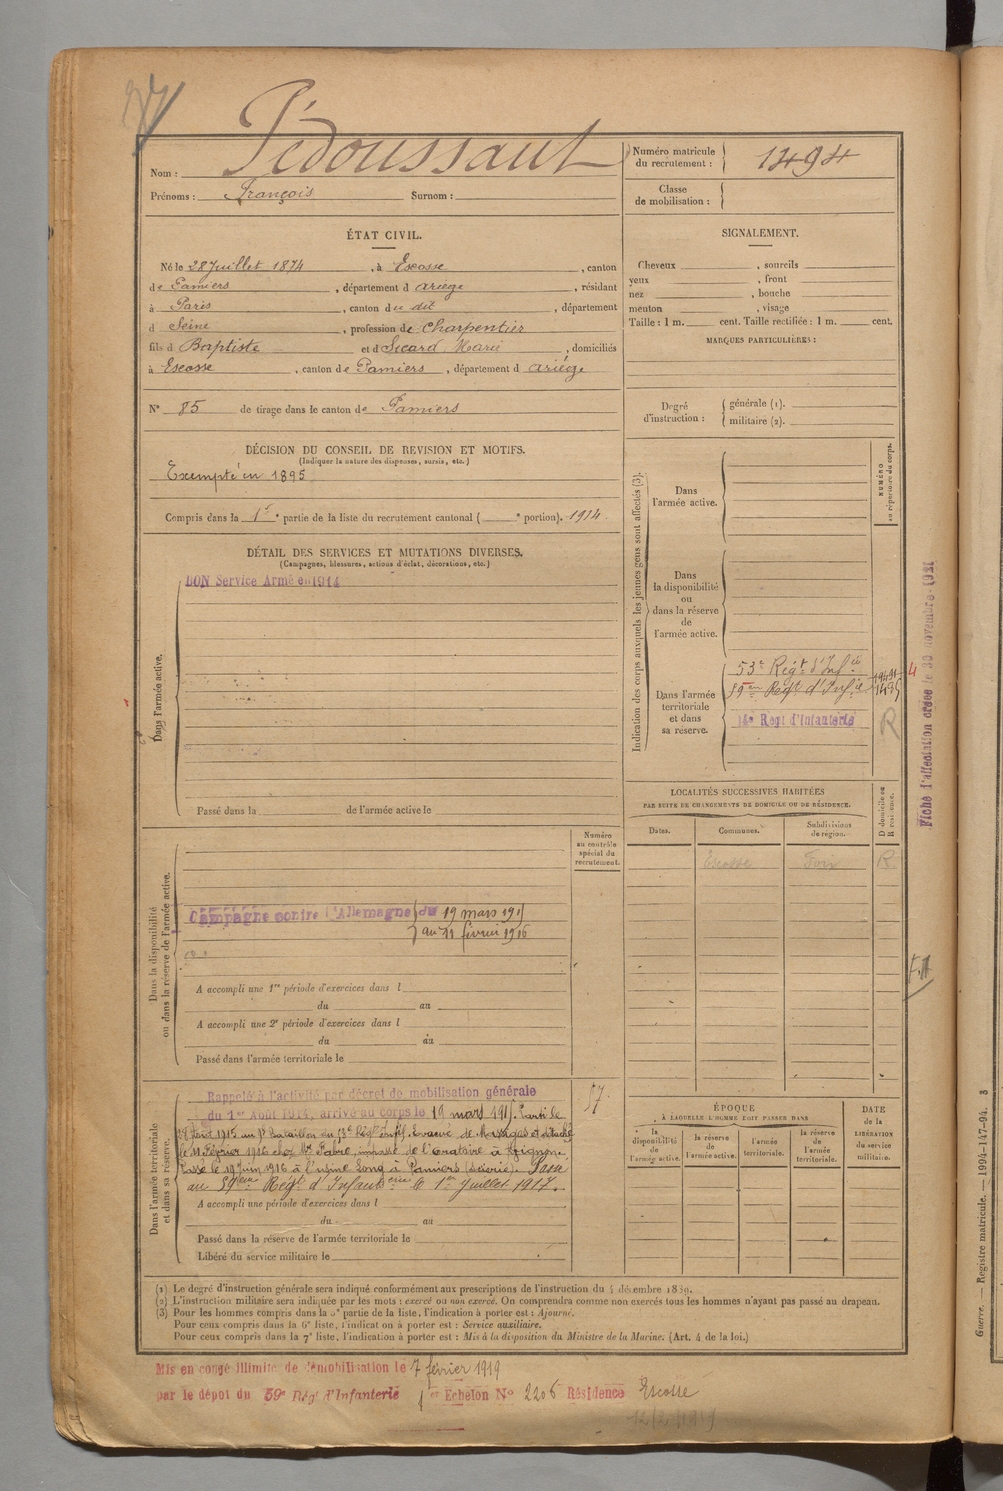 Nom : Pédoussaut
Prénoms : François Surnom :
Numéro matricule du recrutement : 1494
Classe de mobilisation :
ÉTAT CIVIL.
Né le 28 Juillet 1874, à Escosse, canton
de Pamiers, département d Ariège, résidant
à Paris, canton du dit, département
d Seine, profession de Charpentier
fils d Baptiste et d Sicard Marie, domiciliés
à Escosse, canton de Pamiers, département d Ariège
N° 85 de tirage dans le canton de Pamiers
DÉCISION DU CONSEIL DE REVISION ET MOTIFS.
(Indiquer la nature des dispenses, sursis, etc.)
Exempté en 1895
Compris dans la 1re partie de la liste du recrutement cantonal ( e portion). 1914
DÉTAIL DES SERVICES ET MUTATIONS DIVERSES.
(Campagnes, blessures, actions d'éclat, décorations, etc.)
BON Service Armé en 1914
Dans l'armée active.
Passé dans la de l'armée active le
Numéro
au contrôle
spécial du
recrutement.
Dans la disponibilité
ou dans la réserve de l'armée active.
Campagne contre l'Allemagne du 19 mars 1915
au 11 février 1916
A accompli une 1re période d'exercices dans l
du au
A accompli une 2e période d'exercices dans l
du au
Passé dans l'armée territoriale le
Dans l'armée territoriale
et dans sa réserve.
57
Rappelé à l'activité par décret de mobilisation générale
du 1er Août 1914, arrivé au corps le 19 mars 1915. Parti le
Août 1915 au Bataillon du Evacué de et détaché
le 11 Février 1916 chez Mr Fabre, impasse de l'oratoire à Avignon.
Passé le 19 Juin 1916 à l'usine Long à Pamiers (Scierie). Passé
au 59ème Régt d'Infanterie le 1er Juillet 1917.
A accompli une période d'exercices dans l
du au
Passé dans la réserve de l'armée territoriale le
Libéré du service militaire le
SIGNALEMENT.
Cheveux , sourcils
yeux , front
nez , bouche
menton , visage
Taille : 1 m. cent. Taille rectifiée : 1 m. cent.
MARQUES PARTICULIÈRES :
Degré d'instruction : générale (1).
militaire (2).
Indication des corps auxquels les jeunes gens sont affectés (3).
NUMÉRO
au répertoire du corps.
Dans
l'armée active.
Dans
la disponibilité
ou
dans la réserve
de
l'armée active.
Dans l'armée
territoriale
et dans
sa réserve.
53e Régt d'Infie
59eme Régt d'Infie
14e Régt d'Infanterie
R
LOCALITÉS SUCCESSIVES HABITÉES
PAR SUITE DE CHANGEMENTS DE DOMICILE OU DE RÉSIDENCE.
D domicile ou
R résidence.
Dates. Communes. Subdivisions
de région.
Escosse Foix R
ÉPOQUE
À LAQUELLE L'HOMME DOIT PASSER DANS
la disponibilité de l'armée active.
la réserve de l'armée active.
l'armée territoriale.
la réserve de l'armée territoriale.
DATE
de la
LIBÉRATION
du service
militaire.
Fiche d'affectation créée le 30 novembre 1921
(1) Le degré d'instruction générale sera indiqué conformément aux prescriptions de l'instruction du 4 décembre 1889.
(2) L'instruction militaire sera indiquée par les mots : exercé ou non exercé. On comprendra comme non exercés tous les hommes n'ayant pas passé au drapeau.
(3) Pour les hommes compris dans la 5e partie de la liste, l'indication à porter est : Ajourné.
Pour ceux compris dans la 6e liste, l'indication à porter est : Service auxiliaire.
Pour ceux compris dans la 7e liste, l'indication à porter est : Mis à la disposition du Ministre de la Marine. (Art. 4 de la loi.)
Mis en congé illimité de démobilisation le 7 février 1919
par le dépôt du 59e Rég d'Infanterie 1er Echelon N° 2206 Résidence Escosse
12/2/1919
Guerre. — Registre matricule. — 1994-147-94. 3